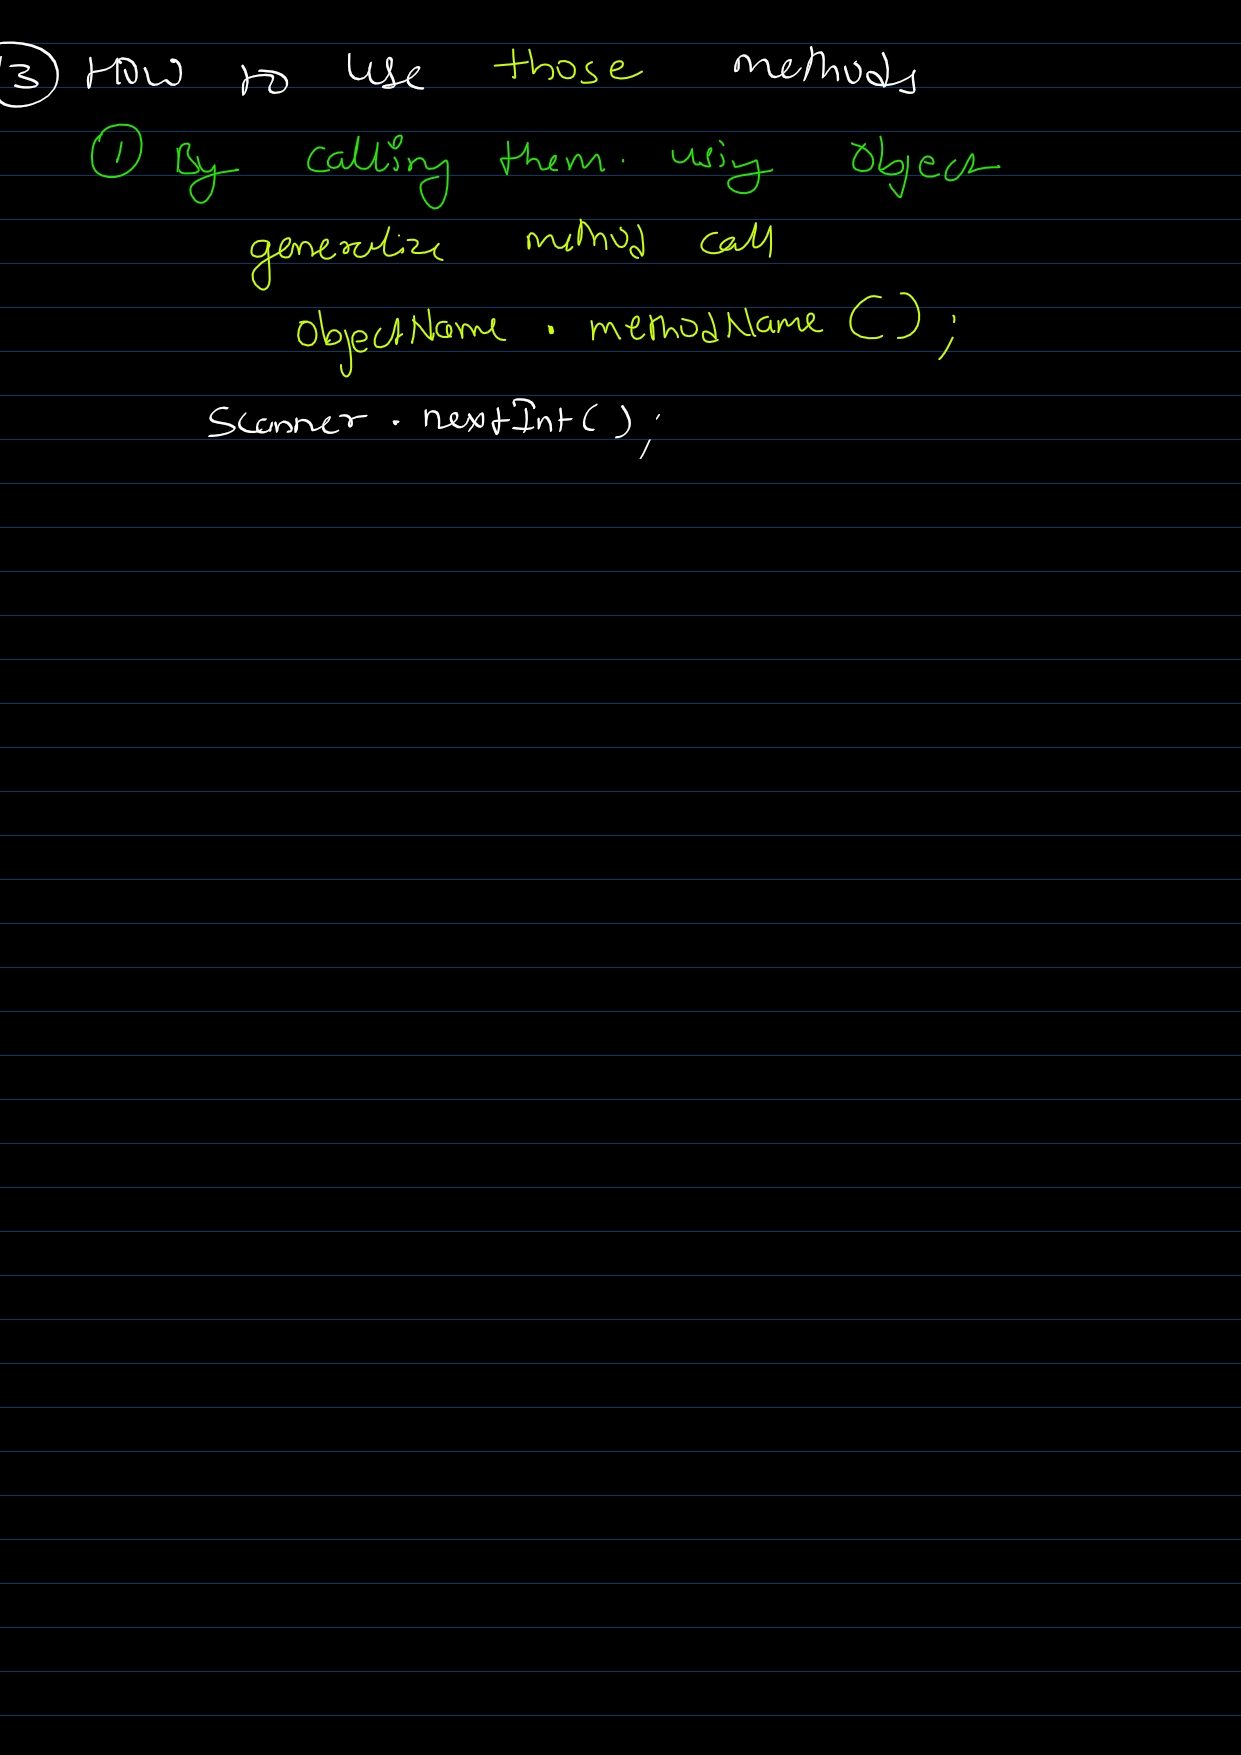 ③ How to use those methods
① By calling them. using object
generalize method call
objectName . methodName ( ) ;
Scanner . nextInt ( ) ;